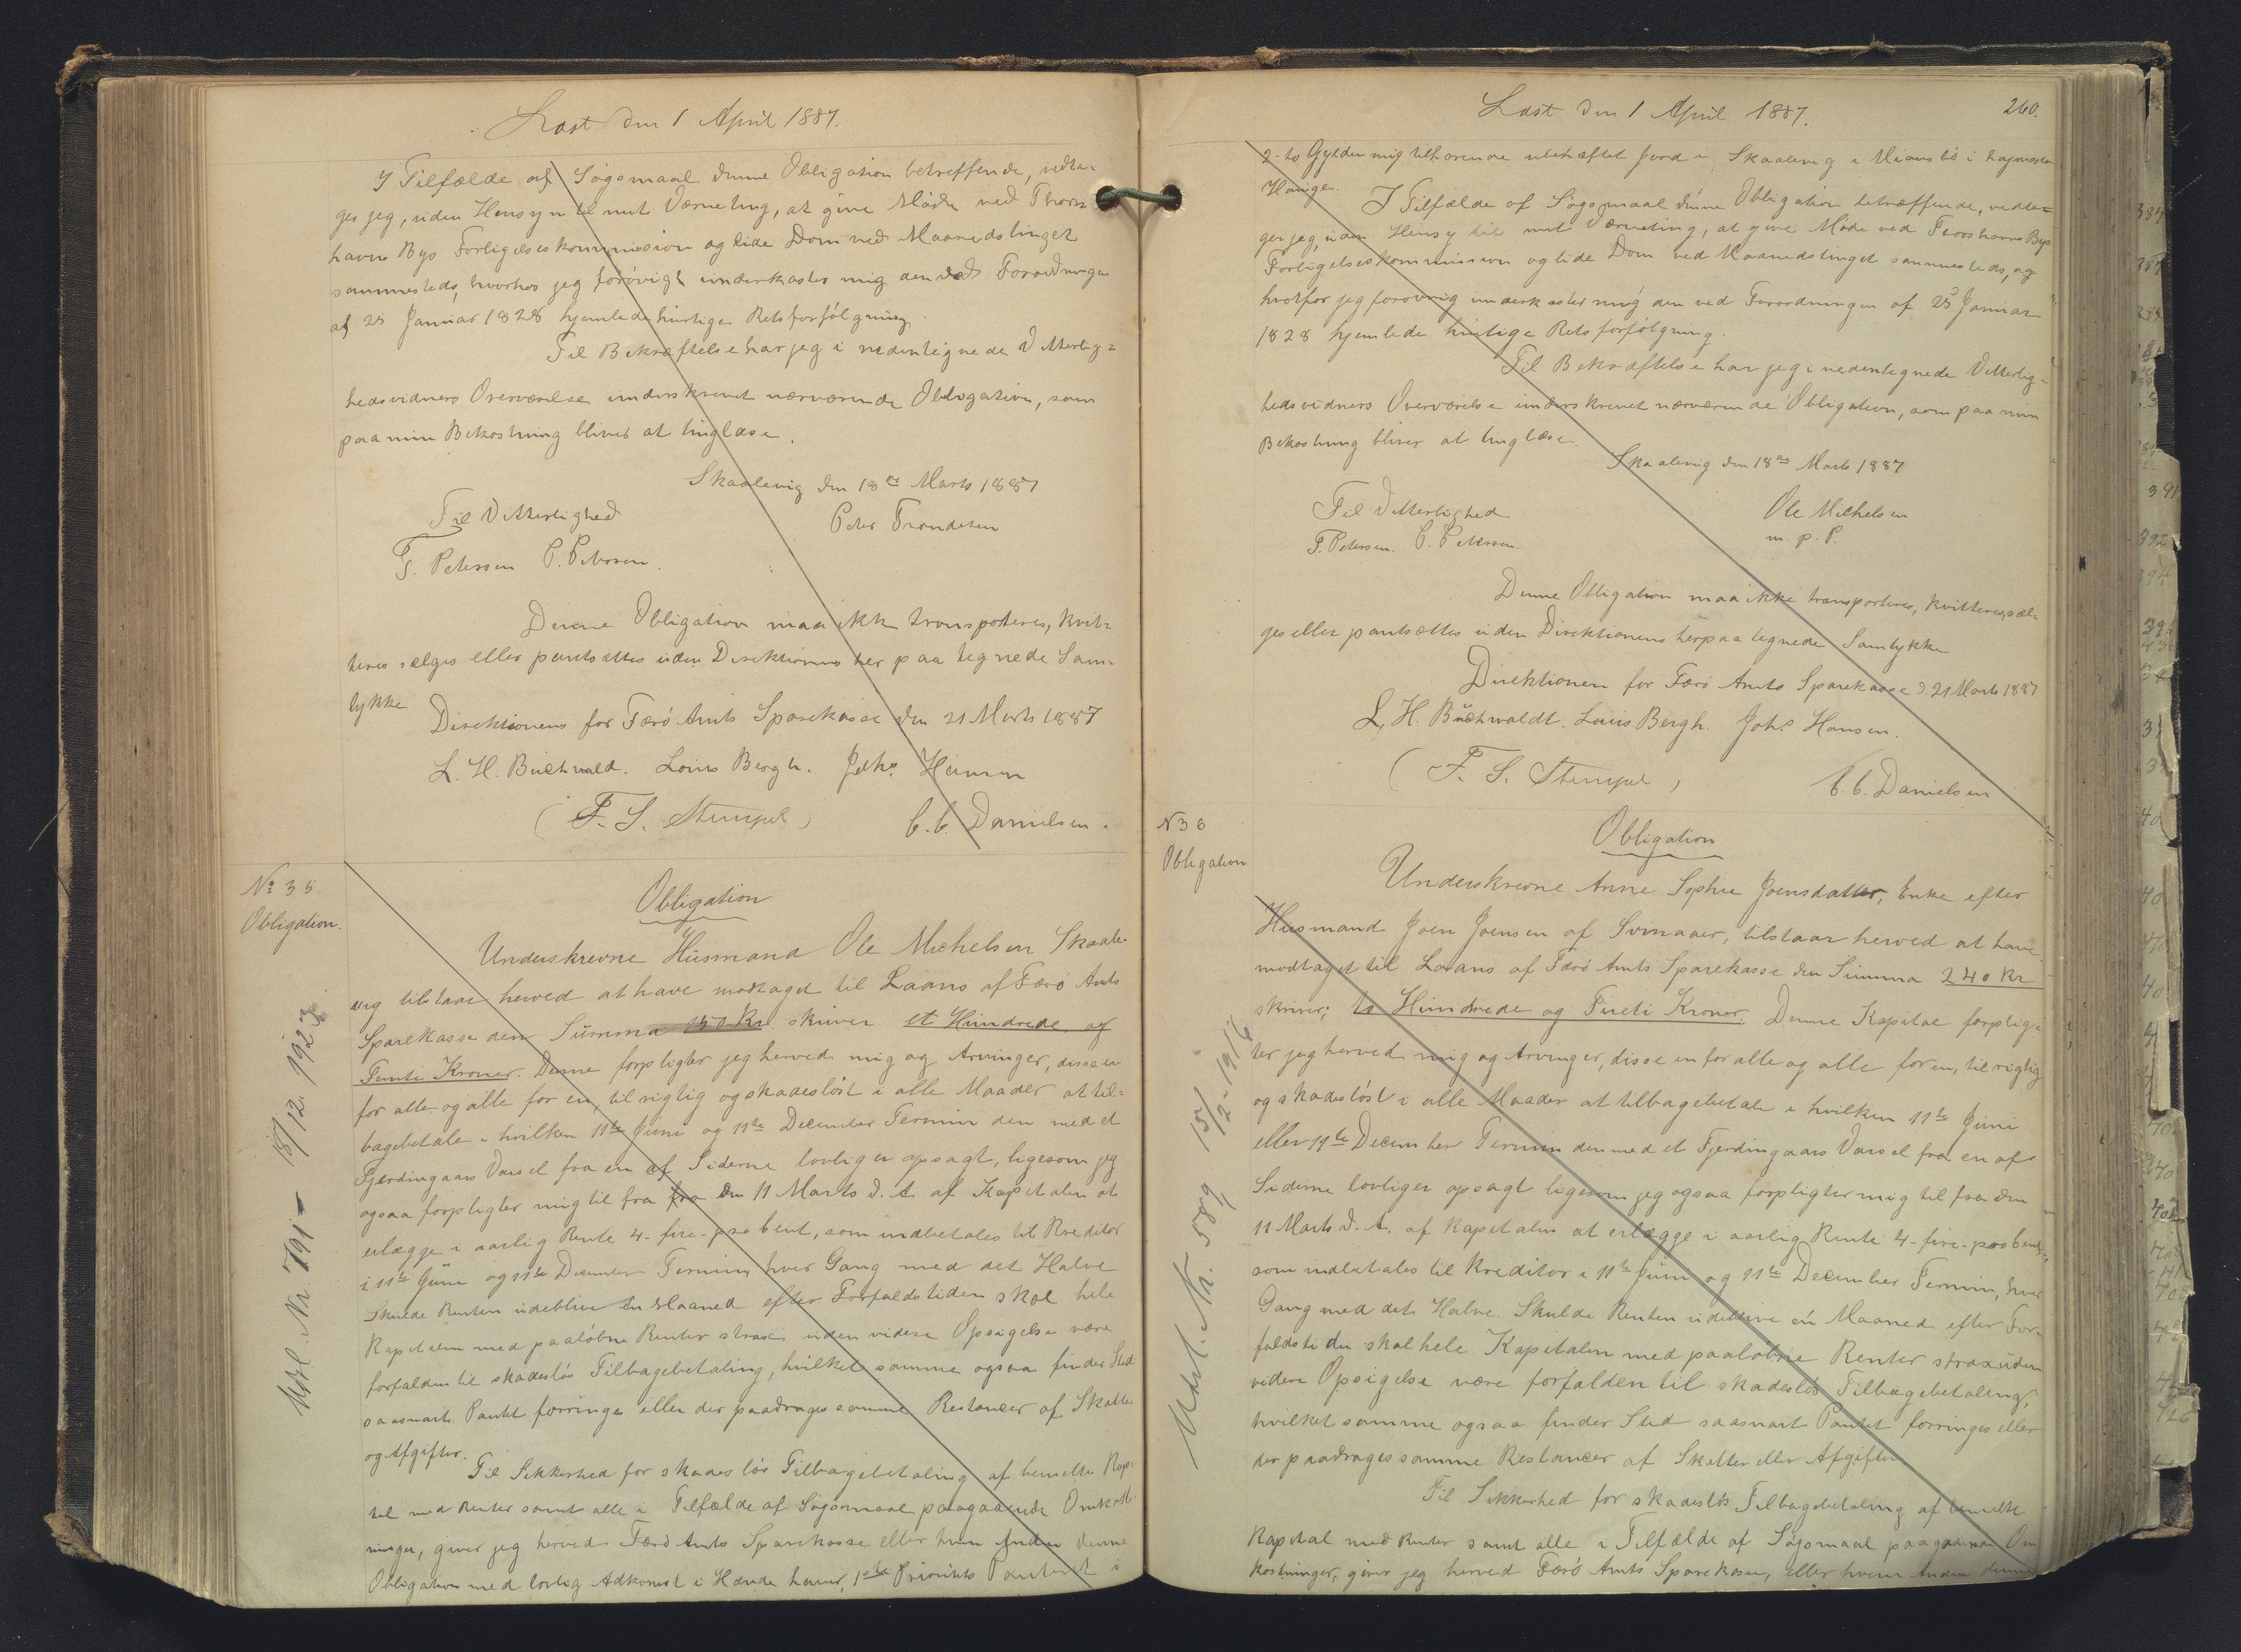 Læst den 1 April 1887.
I Tilfælde af Søgsmaal denne Obligation betreffende, vedta-
ger jeg, uden Hensyn til mit Værneting, at give Møde ved Thors-
havns Bys Forligelseskommission og lide Dom ved Maanedstinget
sammesteds, hvorhos jeg forøvrigt underkaster mig den ved Forordningen
af 25 Januar 1828 hjemlede hurtige Retsforfølgning.
Til Bekræftelse har jeg i nedentegnede Vitterlig=
hedsvidners Overværelse underskrevet nærværende Obligation, som
paa min Bekostning bliver at tinglæse.
Skaalevig den 18de Marts 1887
Til Vitterlighed
Peter Trondesen
T. Petersen P. Petersen.
Denne Obligation maa ikke transporteres, kvit=
teres sælges eller pantsættes uden Direktionens her paa tegnede Sam-
tykke
Direktionens for Færø Amts Sparekasse den 21 Marts 1887
L. H. Buchwald. Louis Bergh. Johs. Hansen
(F. S. Stempel) C. C. Danielsen.
No 35
Obligation.
Obligation
Underskrevne Húsmand Ole Michelsen Skaale-
vig tilstaar herved at have modtaget til Laans af Færø Amts
Sparekasse den Summa 150 Kr skriver et Hundrede og
Femti Kroner. Denne forpligter jeg herved mig og Arvinger, disse en
for alle og alle for en, til rigtig og skadesløst i alle Maader at til=
bagebetale i hvilken 11te Juni og 11te December Termin den med et
Fjerdingaars Varsel fra en af Siderne lovlig er opsagt, ligesom jeg
ogsaa forpligter mig til fra fra den 11 Marts d. A. af Kapitalen at
erlægge i aarlig Rente 4-fire-pro Cent, som indbetales til Kreditor
i 11te Juni og 11te December Termin, hver Gang med det Halve
Skulde Renten udeblive en Maaned efter Forfaldstiden skal hele
Kapitalen med paaløbne Renter strax uden videre Opsigelse være
forfalden til skadesløs Tilbagebetaling, hvilket samme ogsaa finder Sted
saasnart Pantet forringes eller der paadrages samme Restancer af Skatter
og Afgifter.
Til Sikkerhed for skadesløs Tilbagebetaling af bemeldte Kapi-
tal med Renter samt alle i Tilfælde af Søgsmaal paagaaende Omkost-
ninger, giver jeg herved Færø Amts Sparekasse eller hvem Anden denne
Obligation med lovlig Adkomst i Hænde haver, 1ste Prioritets Panteret i
Udsl. Nr. 791 - 15/12. 1923
Læst den 1 April 1887.
260.
2-to Gylden mig tilhørende ubehæftet Jord i Skaalevig i
Hauge.
I Tilfælde af Søgsmaal denne Obligation betræffende, vedta-
ger jeg, uden Hensy til mit Værneting, at give Møde ved Thorshavns Bys
Forligelseskommission og lide Dom ved Maanedstinget sammesteds, og
hvorfor jeg forøvrig underkaster mig den ved Forordningen af 25 Januar
1828 hjemlede hurtige Retsforfølgning.
Til Bekræftelse har jeg i nedentegnede Vitterlig-
hedsvidners Overværelse underskrevet nærværende Obligation, som paa min
Bekostning bliver at tinglæse.
Skaalevig den 18de Marts 1887
Til Vitterlighed
Ole Michelsen
T. Petersen. P. Petersen.
m. p. P.
Denne Obligation maa ikke transporteres, kvitteres, sæl-
ges eller pantsættes uden Direktionens herpaa tegnede Samtykke
Direktionen for Færø Amts Sparekasse d. 21 Marts 1887
L. H. Buchwaldt. Louis Bergh. Johs. Hansen.
(F. S. Stempel) C. C. Danielsen
N 36
Obligation
Obligation
Underskrevne Anne Sophie Joensdatter, Enke efter
Husmand Joen Joensen af Svinaaer, tilstaar herved at have
modtaget til Laans af Færø Amts Sparekasse den Summa 240 Kr
skriver; to Hundrede og Fireti Kroner. Denne Kapital forplig-
ter jeg herved mig og Arvinger, disse en for alle og alle for en, til rigtig
og skadesløst i alle Maader at tilbagebetale i hvilken 11te Juni
eller 11te December Termin den med et Fjerdingaars Varsel fra en af
Siderne lovliger opsagt ligesom jeg ogsaa forpligter mig til fra den
11 Marts d. A. af Kapitalen at erlægge i aarlig Rente 4-fire-pro Cent,
som indbetales til Kreditor i 11te Juni og 11te December Termin, hver
Gang med det Halve. Skulde Renten udeblive én Maaned efter For-
faldstiden skal hele Kapitalen med paaløbne Renter strax uden
videre Opsigelse være forfalden til skadesløs Tilbagebetaling,
hvilket samme ogsaa finder Sted saasnart Pantet forringes eller
der paadrages samme Restancer af Skatter eller Afgifter
Til Sikkerhed for skadesløs Tilbagebetaling af bemeldte
Kapital med Renter samt alle i Tilfælde af Søgsmaal paagaaende Om
kostninger, giver jeg herved Færø Amts Sparekasse, eller hvem Anden denne
Udsl. Nr. 589 15/2-1916